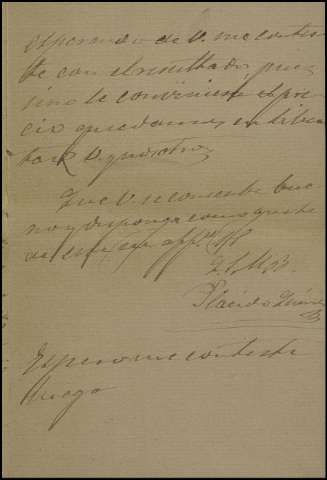 esperando de V. me contes
te con el resultado, pues
sino le conviniese el pre
cio quedamos en liber
tad V. y nosotros
Que V. se conserve bue
no y disponga como guste
de este su affmo
Q B S M
Plácido
Espero me conteste
luego